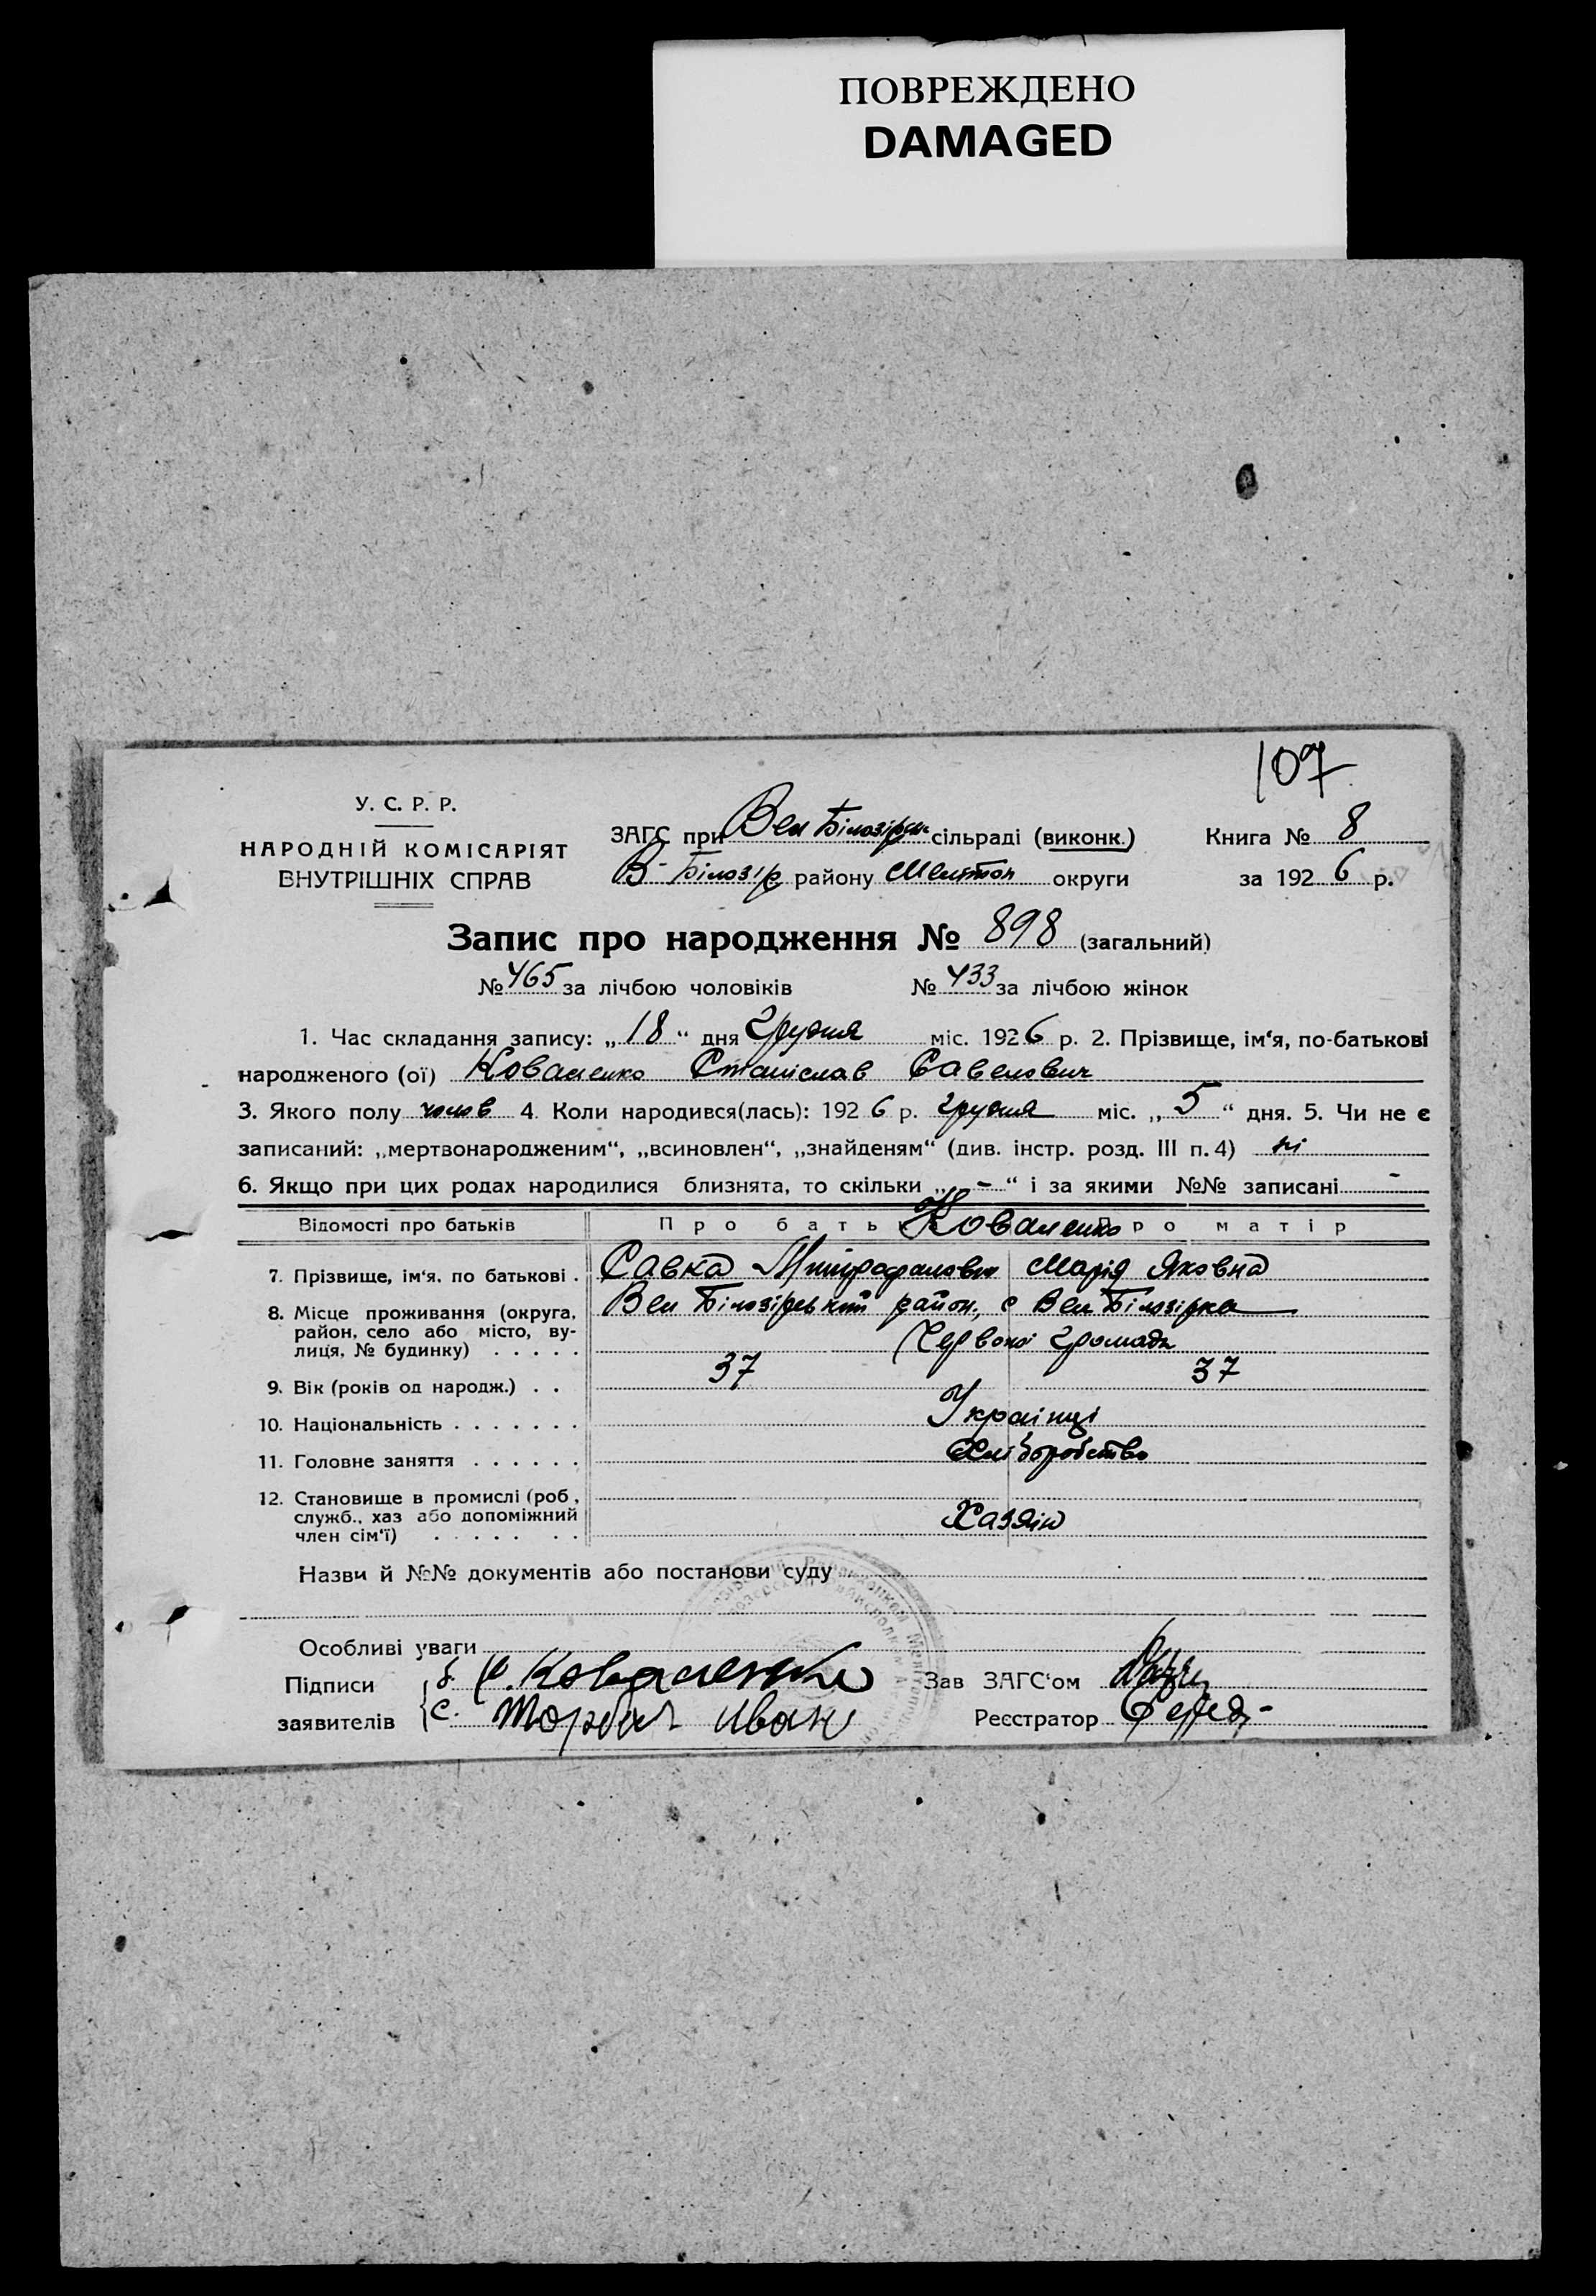 ПОВРЕЖДЕНО
DAMAGED
107
У. С. Р. Р.
НАРОДНІЙ КОМІСАРІЯТ
ВНУТРІШНІХ СПРАВ
ЗАГС при Вел Білозірськ сільраді (виконк.)
В-Білозір району Мелітоп округи
Книга № 8
за 1926 р.
Запис про народження № 898 (загальний)
№ 465 за лічбою чоловіків № 433 за лічбою жінок
1. Час складання запису: „18“ дня Грудня міс. 1926 р. 2. Прізвище, ім‘я, по-батькові
народженого (ої) Коваленко Станіслав Савелович
3. Якого полу чолов 4. Коли народився(лась): 1926 р. грудня міс. „5“ дня. 5. Чи не є
записаний: „мертвонародженим“, „всиновлен“, „знайденям“ (див. інстр. розд. III п. 4) ні
6. Якщо при цих родах народилися близнята, то скільки „-“ і за якими №№ записані -
Відомості про батьків Про батька Про матір
Коваленко
7. Прізвище, ім‘я, по батькові . Савка Митрофанович Марія Яковна
8. Місце проживання (округа, район, село або місто, вулиця, № будинку) . . . . . Вел Білозірський район, с Вел Білозірка
Червоної громади
9. Вік (років од народж.) . . 37 37
10. Національність . . . . . . . Українці
11. Головне заняття . . . . . . Хліборобство
12. Становище в промислі (роб.,
служб., хаз або допоміжний
член сім‘ї) . . . . . . . Хазяїн
Назви й №№ документів або постанови суду
Особливі уваги
Підписи б. Коваленко Зав ЗАГС‘ом
заявителів с. Торбич Иван Реєстратор Середа